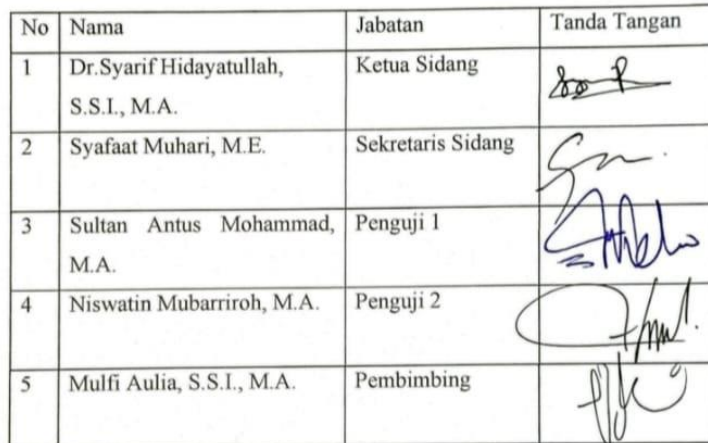 No Nama Jabatan Tanda Tangan
1 Dr.Syarif Hidayatullah, Ketua Sidang
S.S.I., M.A.
2 Syafaat Muhari, M.E. Sekretaris Sidang
3 Sultan Antus Mohammad, Penguji 1
M.A.
4 Niswatin Mubarriroh, M.A. Penguji 2
5 Mulfi Aulia, S.S.I., M.A. Pembimbing